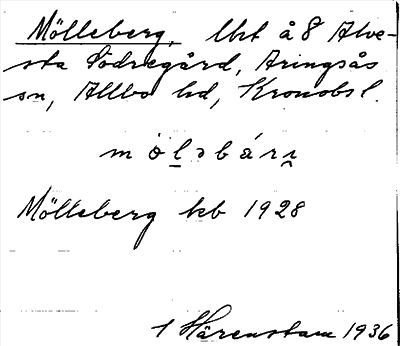 Mölleberg, Urt å 8 Alve-
sta Södregård, Aringsås
sn, Allbo hd, Kronobs l.
m ö l ə b á r ı
Mölleberg kb 1928
1 Härenstam 1936